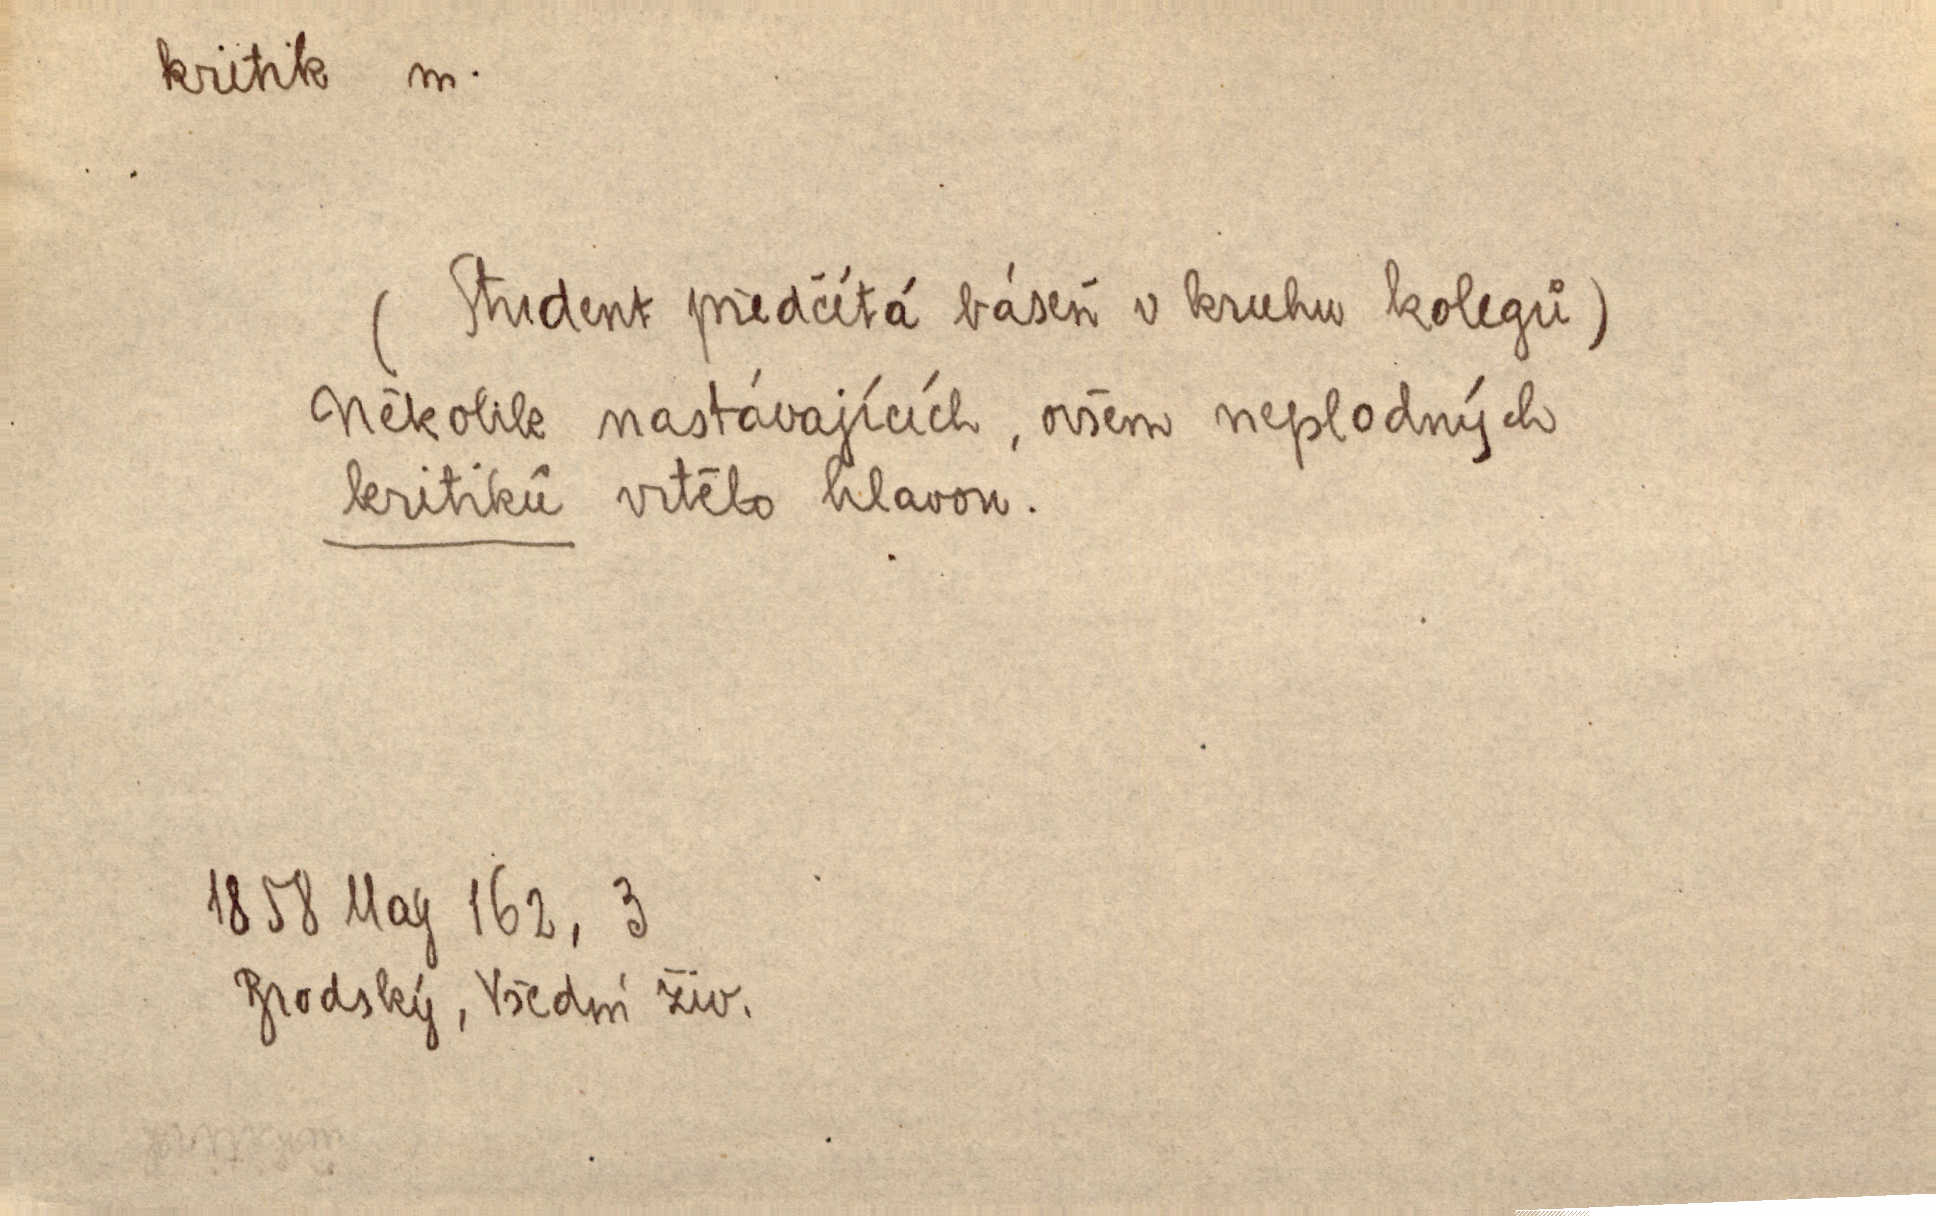 kritik m.
(Student předčítá báseň v kruhu kolegů)
Několik nastávajících, ovšem neplodných
kritiků vrtělo hlavou.
1858 Mag 162, 3
Brodský, Všední živ.